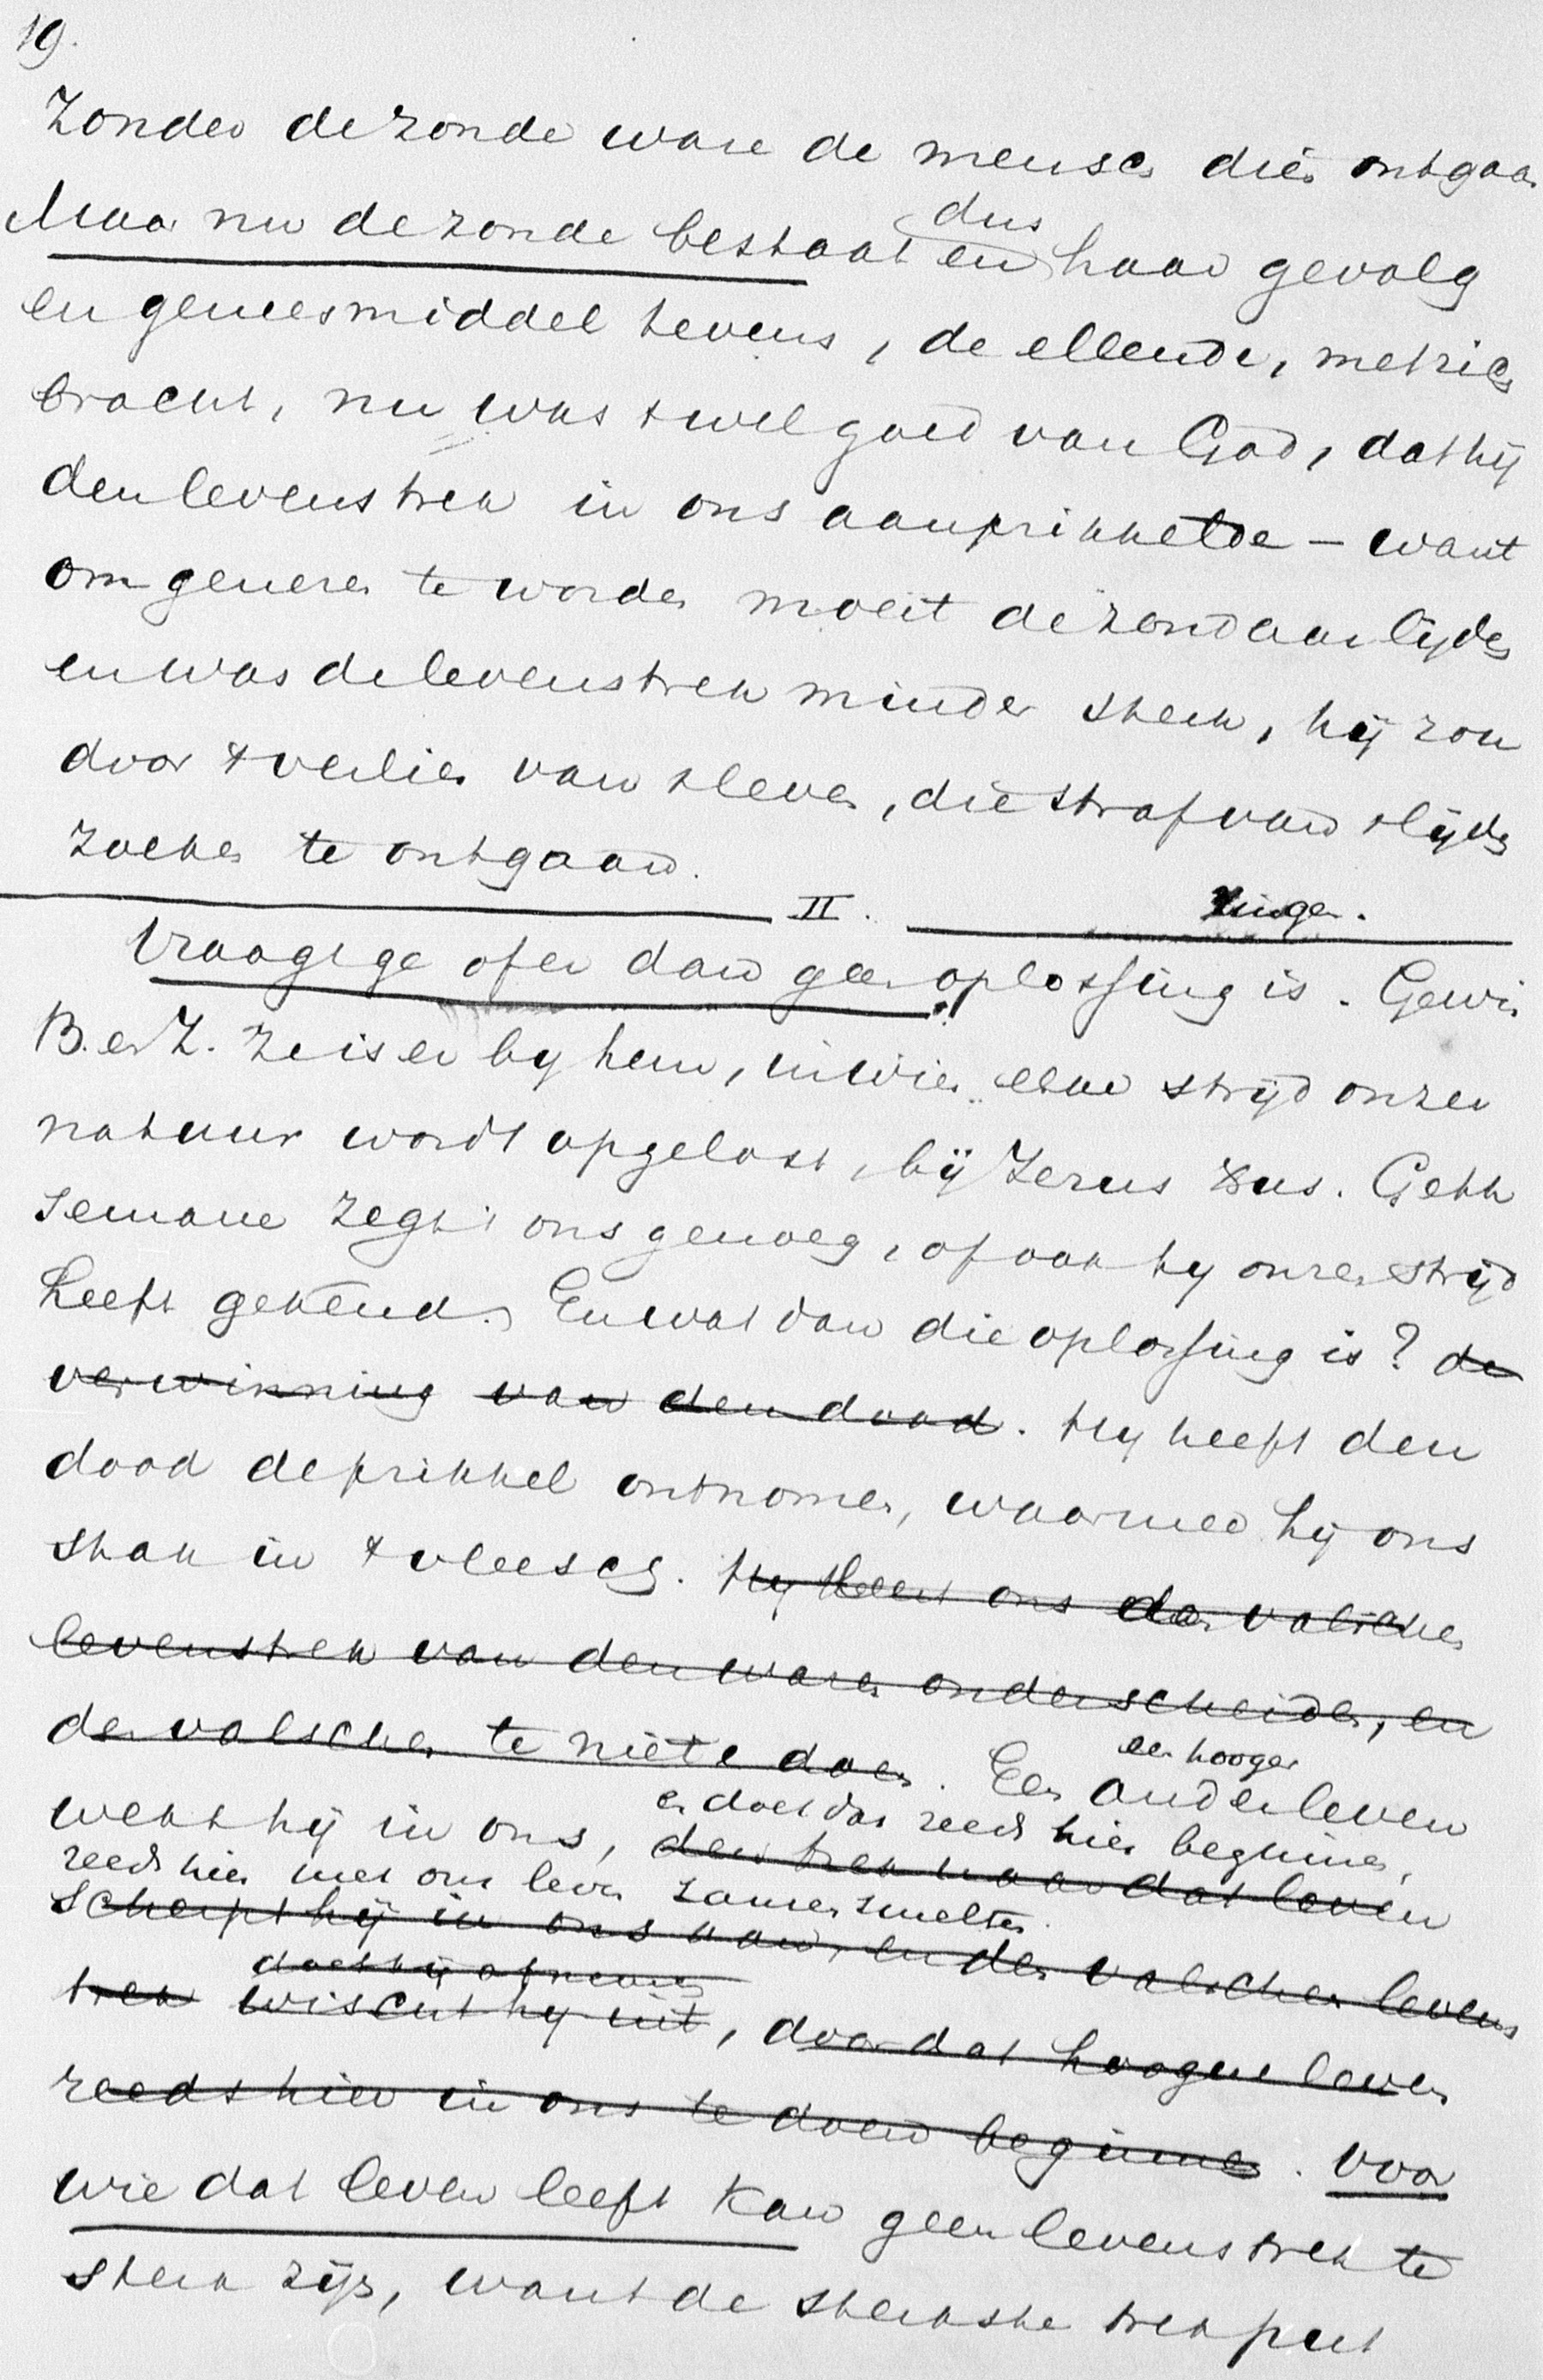 19.
Zonder de zonde ware de mensch dien ontgaan
Maar nu de zonde bestaat dus en haar gevolg
en geneesmiddel tevens, de ellende, met zich
bracht, nu was 't wel goed van God, dat hij
den levenstrek in ons aanprikkelde – want
om genezen te worden moest de zondaar lijden
en was de levenstrek minder sterk, hij zou
door 't verlies van 't leven, die straf van 't lijden
zoeken te ontgaan.
II. Zingen.
Vraagt ge of er dan geen oplossing is. Gewis
B. en Z. ze is er by hem, in wien elke strijd onzer
natuur wordt opgelost, bij Jezus Xus. Geth
semane zegt 't ons genoeg, of ook hy onzen strijd
heeft gekend. En wat dan die oplossing is? de
verwinning van den dood. Hy heeft den
dood de prikkel ontnomen, waarmee hij ons
stak in 't vleesch. Hy leert ons den valschen
levenstrek van den waren onderscheiden, en
den valschen te niete doen. Een ander leven
een hooger
wekt hij in ons, den trek naar dat leven
en doet dat reeds hier beginnen,
reeds hier met ons leven zamensmelten.
scherpt hij in ons aan, en den valschen levens
trek wischt hy uit, door dat hooger leven
doet hij afnemen
reeds hier in ons te doen beginnen. Voor
wie dat leven leeft kan geen levenstrek te
sterk zijn, want de sterkste trek put